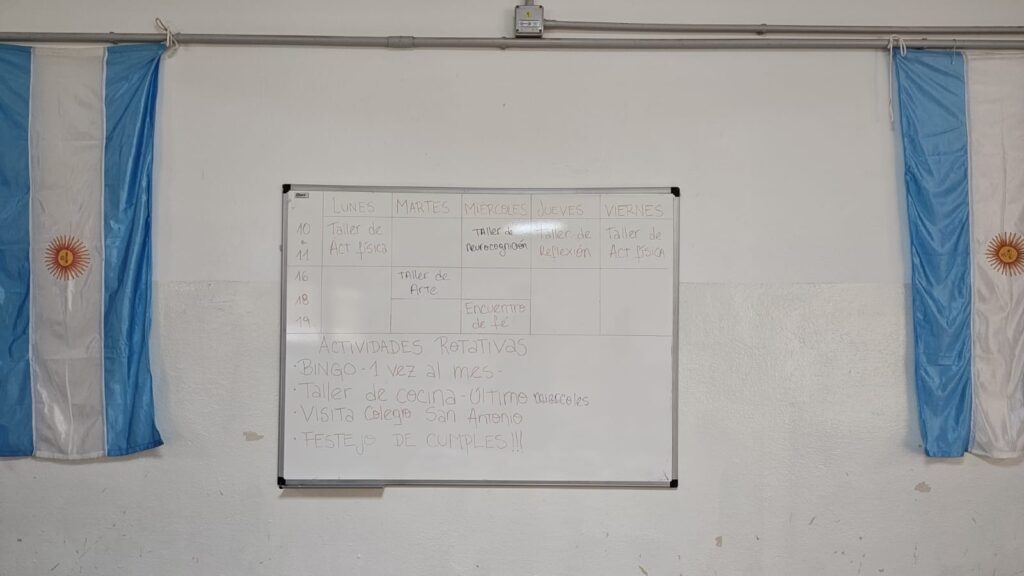 LUNES MARTES MIERCOLES JUEVES VIERNES
10 Taller de Taller de Taller de Taller de
a
11 Act física neurocognición Reflexión Act física
16 Taller de
Arte
18 Encuentro
19 de fé
ACTIVIDADES ROTATIVAS
· BINGO - 1 vez al mes -
· Taller de cocina - Último miercoles
· VISITA Colegio San Antonio
· FESTEJO DE CUMPLES!!!